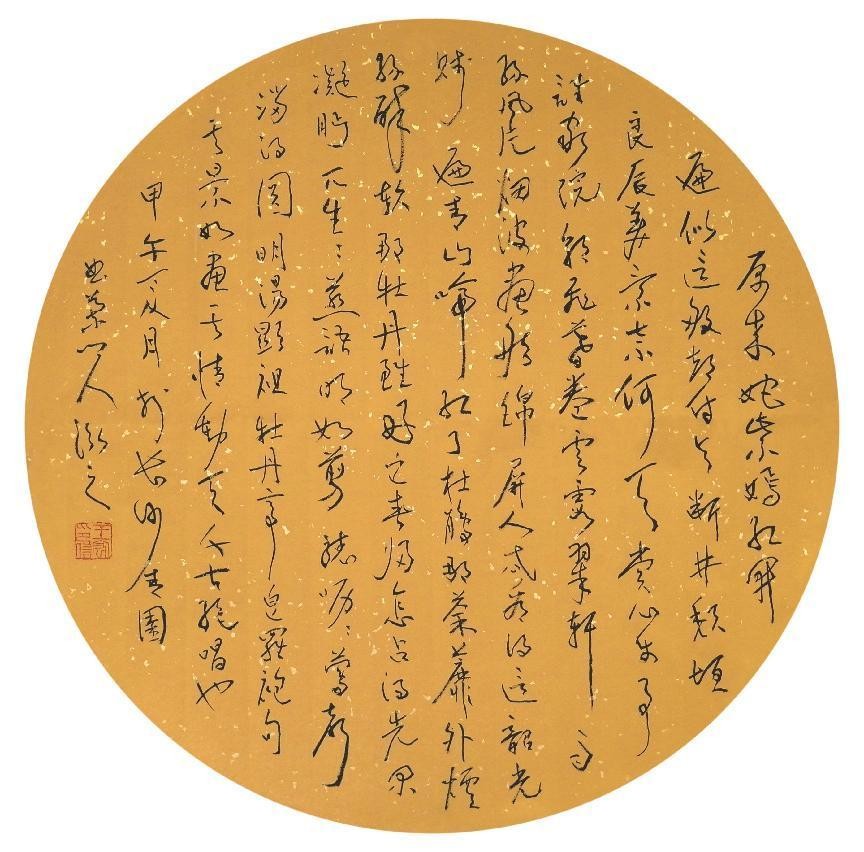 原来姹紫嫣红开
遍似这般都付与断井颓垣
良辰美景奈何天赏心乐事
谁家院朝飞暮卷云霞翠轩雨
丝风片烟波画船锦屏人忒看得这韶光
贱遍青山啼红了杜鹃那荼蘼外烟
丝醉软那牡丹虽好它春归怎占得先闲
凝眄生生燕语明如剪听呖呖莺声
溜得圆明汤显祖牡丹亭皂罗袍句
其景如画其情动天千古绝唱也
甲午夏月于长沙 园
人 之